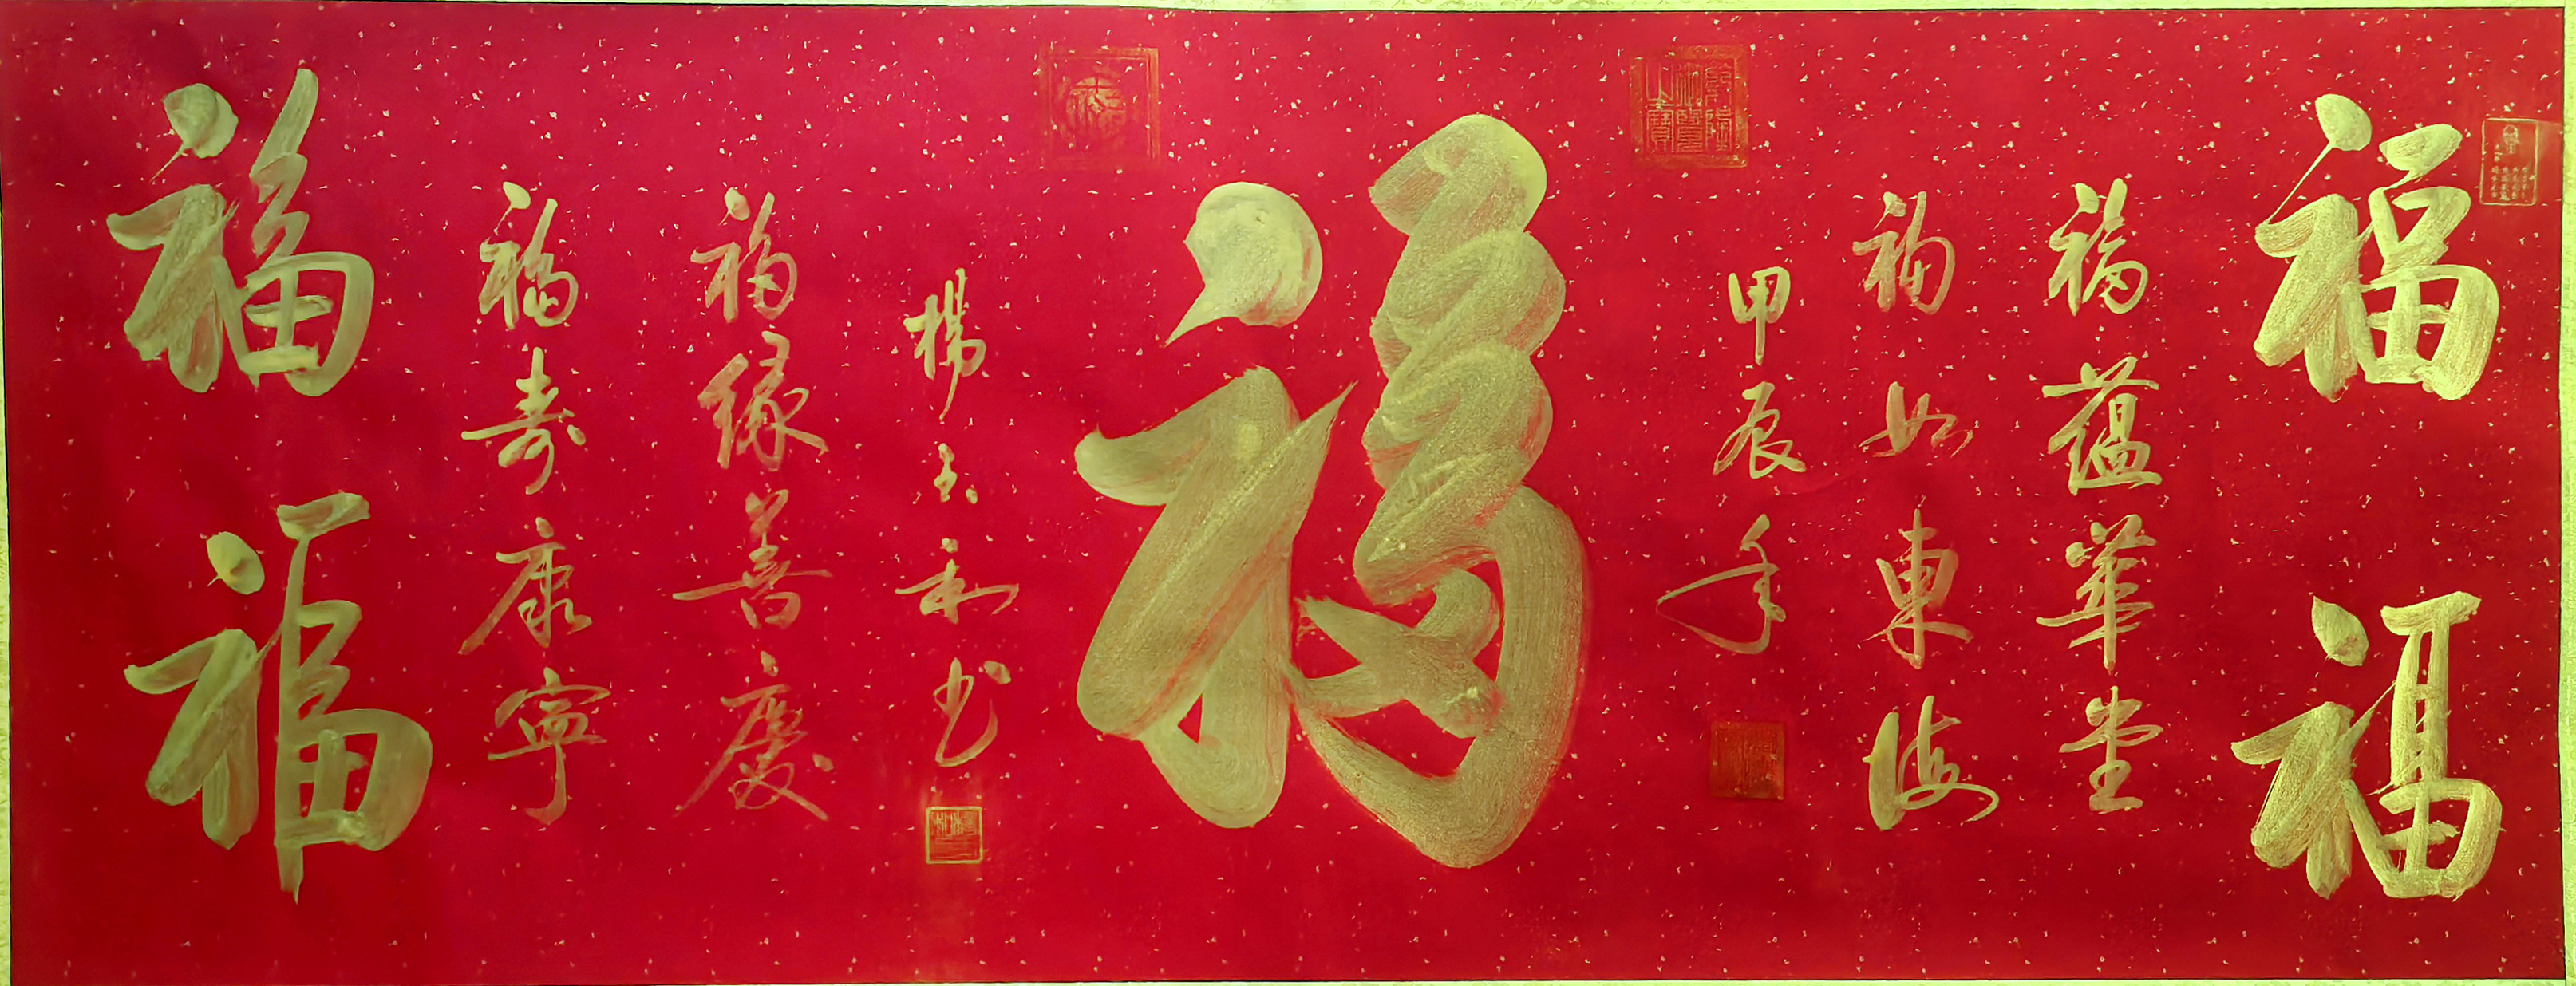 福
福
福蘊華堂
福如東海
甲辰年
福
楊玉和书
福緣善慶
福寿康寧
福
福